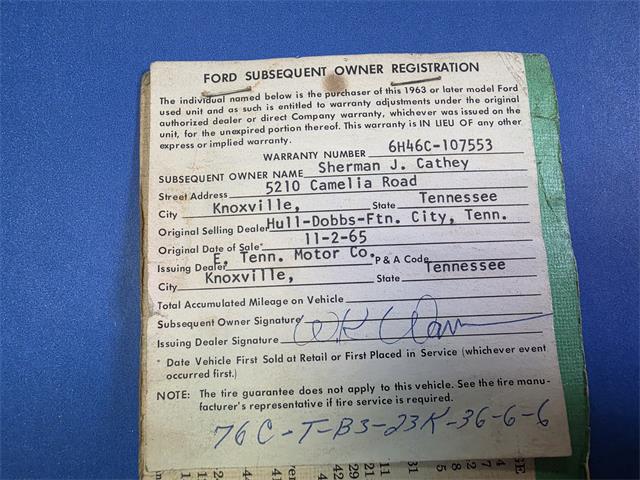 FORD SUBSEQUENT OWNER REGISTRATION
The individual named below is the purchaser of this 1963 or later model Ford
used unit and as such is entitled to warranty adjustments under the original
authorized dealer or direct Company warranty, whichever was issued on the
unit, for the unexpired portion thereof. This warranty is IN LIEU OF any other
express or implied warranty.
WARRANTY NUMBER 6H46C-107553
SUBSEQUENT OWNER NAME Sherman J. Cathey
Street Address 5210 Camelia Road
City Knoxville, State Tennessee
Original Selling Dealer Hull-Dobbs-Ftn. City, Tenn.
Original Date of Sale* 11-2-65
Issuing Dealer E. Tenn. Motor Co. P & A Code
City Knoxville, State Tennessee
Total Accumulated Mileage on Vehicle
Subsequent Owner Signature
Issuing Dealer Signature
* Date Vehicle First Sold at Retail or First Placed in Service (whichever event
occurred first.)
NOTE: The tire guarantee does not apply to this vehicle. See the tire manu-
facturer's representative if tire service is required.
76C-T-B3-23K-36-6-6